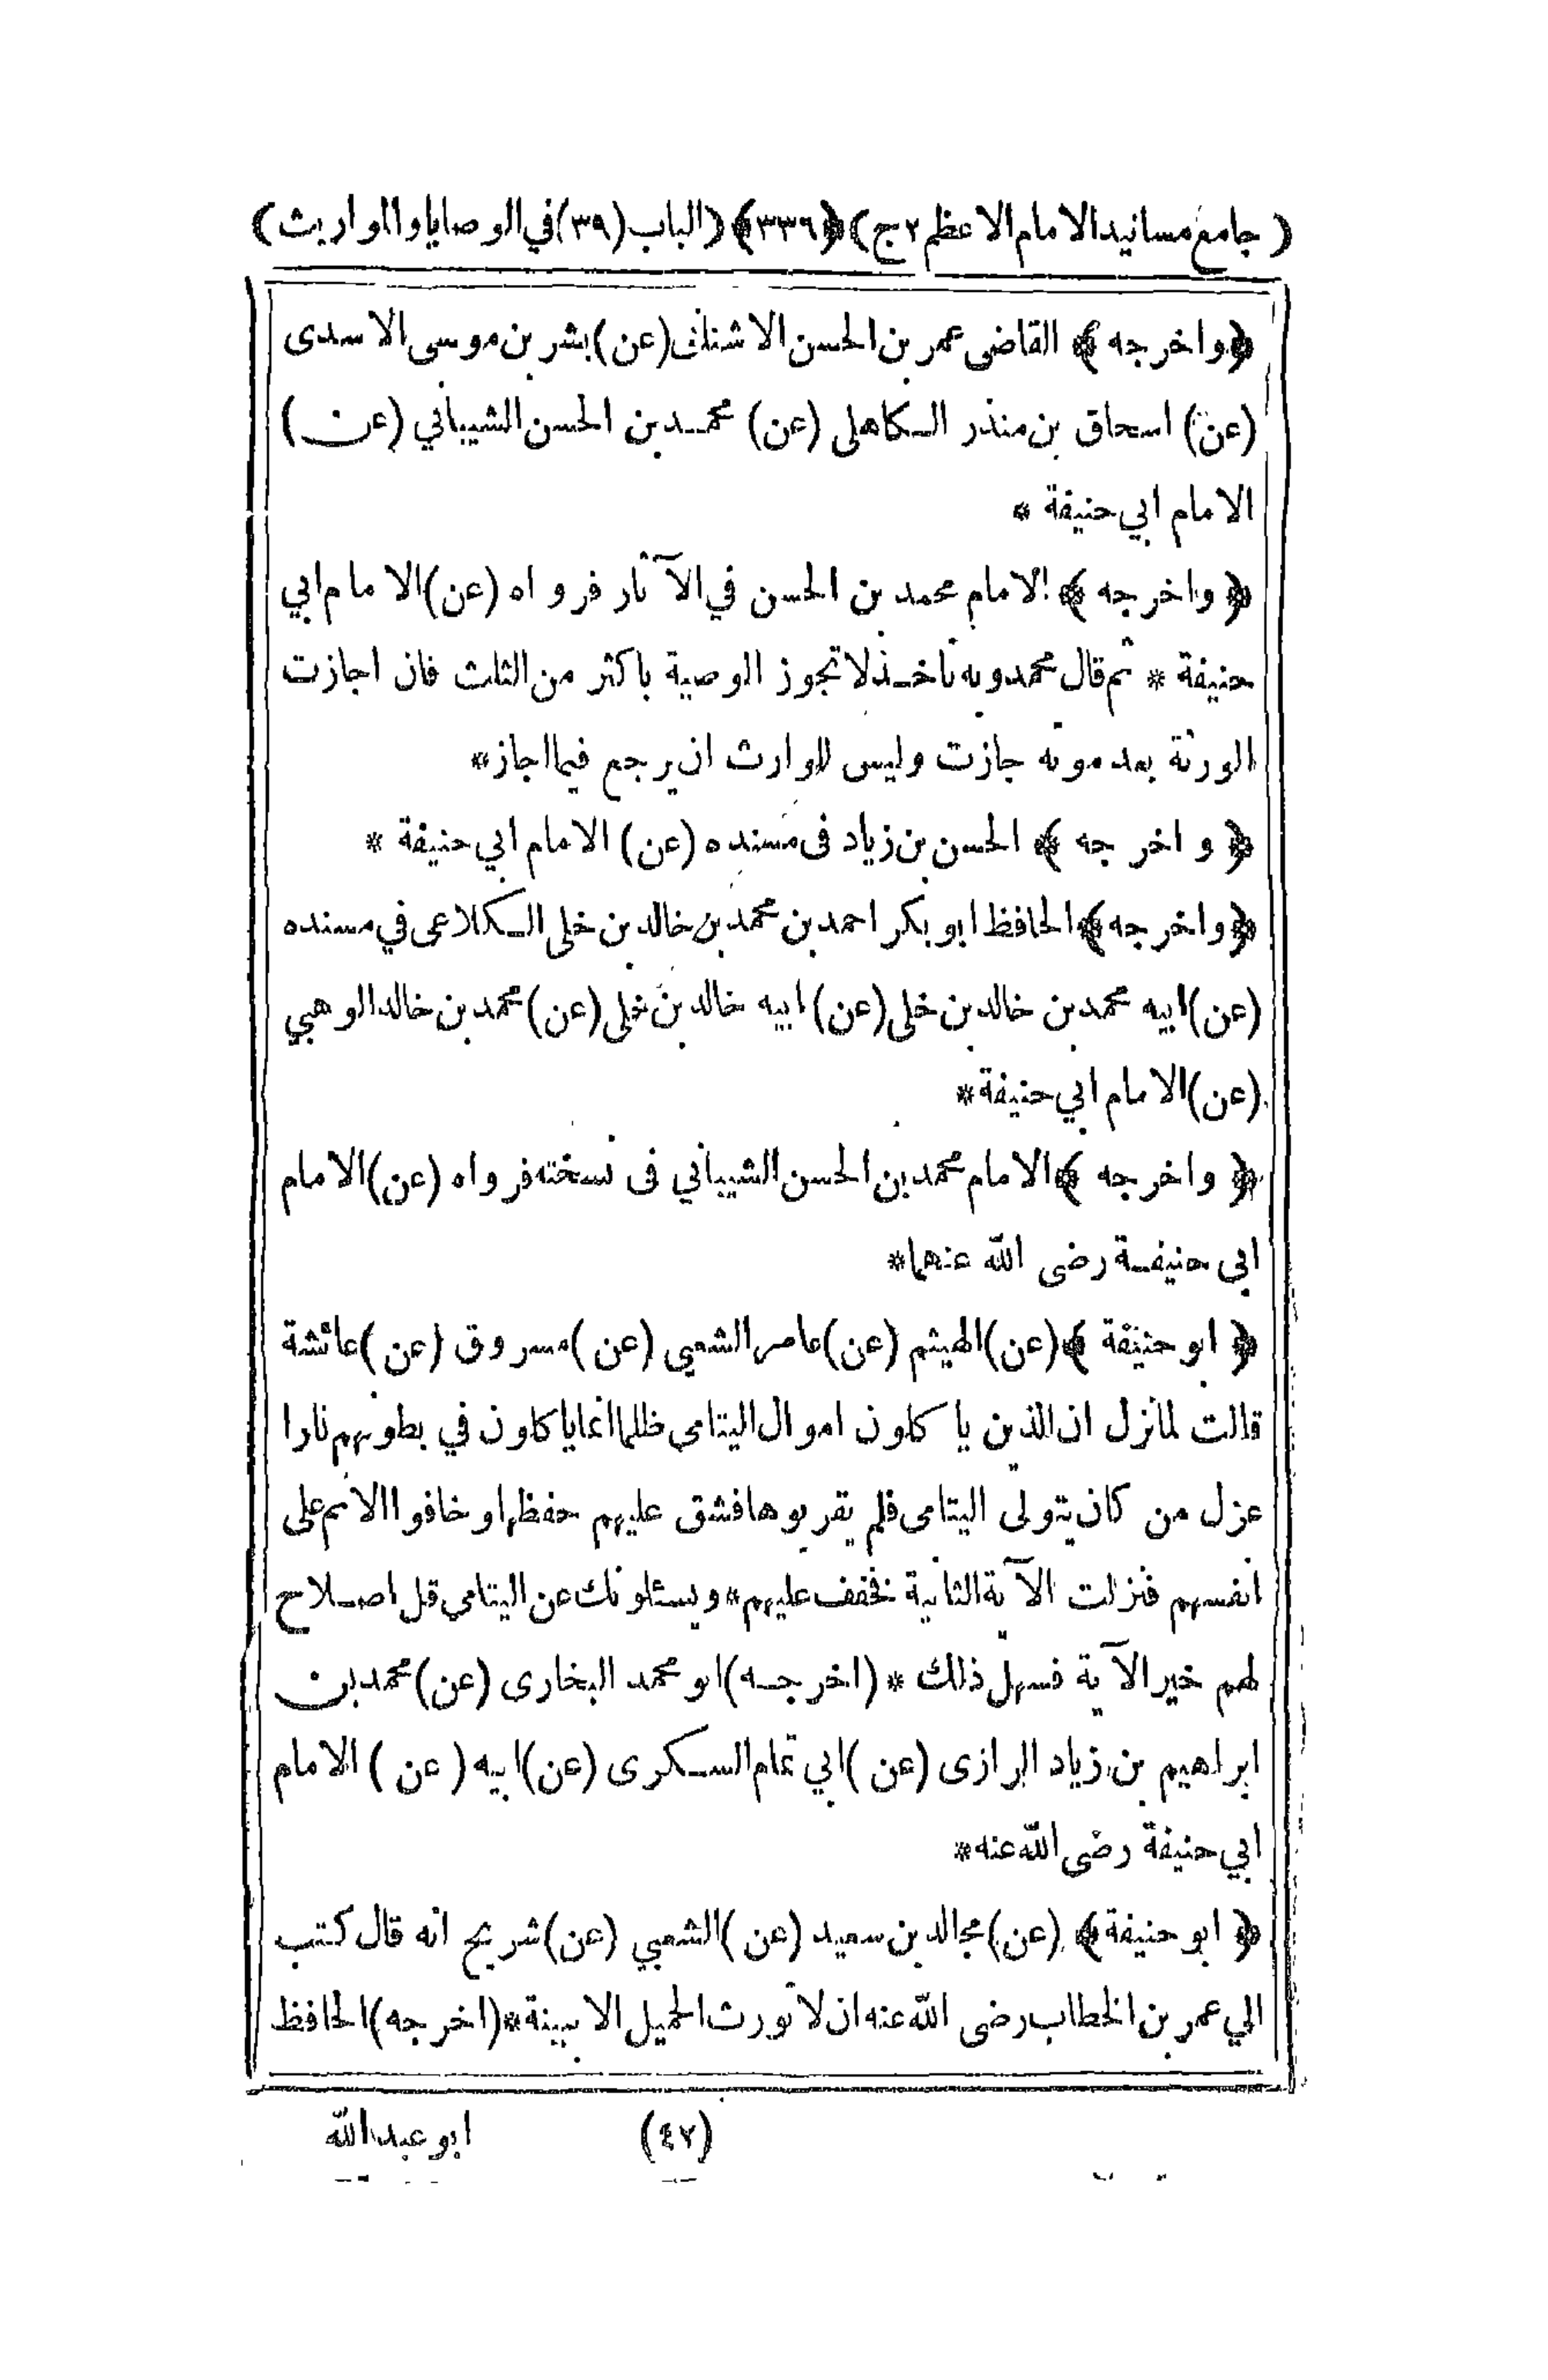 (جامع مسانيد الامام الاعظم ٢ ج) ﴿٣٣٦﴾ (الباب (٣٩) في الوصايا والمواريث)
﴿واخرجه﴾ القاضى عمر بن الحسن الاشنانى (عن) بشر بن موسى الاسدى
(عن) اسحاق بن منذر الكاهلى (عن) محمد بن الحسن الشيباني (عن)
الامام ابي حنيفة *
﴿واخرجه﴾ الامام محمد بن الحسن في الآثار فرواه (عن) الامام ابي
حنيفة * ثم قال محمد وبه نأخذ لا تجوز الوصية باكثر من الثلث فان اجازت
الورثة بعد موته جازت وليس للوارث ان يرجع فيما اجاز *
﴿واخرجه﴾ الحسن بن زياد فى مسنده (عن) الامام ابي حنيفة *
﴿واخرجه﴾ الحافظ ابو بكر احمد بن محمد بن خالد بن خلى الكلاعى في مسنده
(عن) ابيه محمد بن خالد بن خلى (عن) ابيه خالد بن خلى (عن) محمد بن خالد الوهبي
(عن) الامام ابي حنيفة *
﴿واخرجه﴾ الامام محمد بن الحسن الشيباني فى نسخته فرواه (عن) الامام
ابي حنيفة رضى الله عنهما *
﴿ابو حنيفة﴾ (عن) الهيثم (عن) عامر الشعبي (عن) مسروق (عن) عائشة
قالت لما نزل ان الذين ياكلون اموال اليتامى ظلما انما ياكلون في بطونهم نارا
عزل من كان يتولى اليتامى فلم يقربوها فشق عليهم حفظها وخافوا الاثم على
انفسهم فنزلت الآية الثانية فخفف عليهم * ويسئلونك عن اليتامى قل اصلاح
لهم خير الآية فسهل ذلك * (اخرجه) ابو محمد البخارى (عن) محمد بن
ابراهيم بن زياد الرازى (عن) ابي تمام السكرى (عن) ابيه (عن) الامام
ابي حنيفة رضى الله عنه *
﴿ابو حنيفة﴾ (عن) مجالد بن سعيد (عن) الشعبي (عن) شريح انه قال كتب
الي عمر بن الخطاب رضى الله عنه ان لا نورث الحميل الا ببينة * (اخرجه) الحافظ
(٤٧) ابو عبد الله